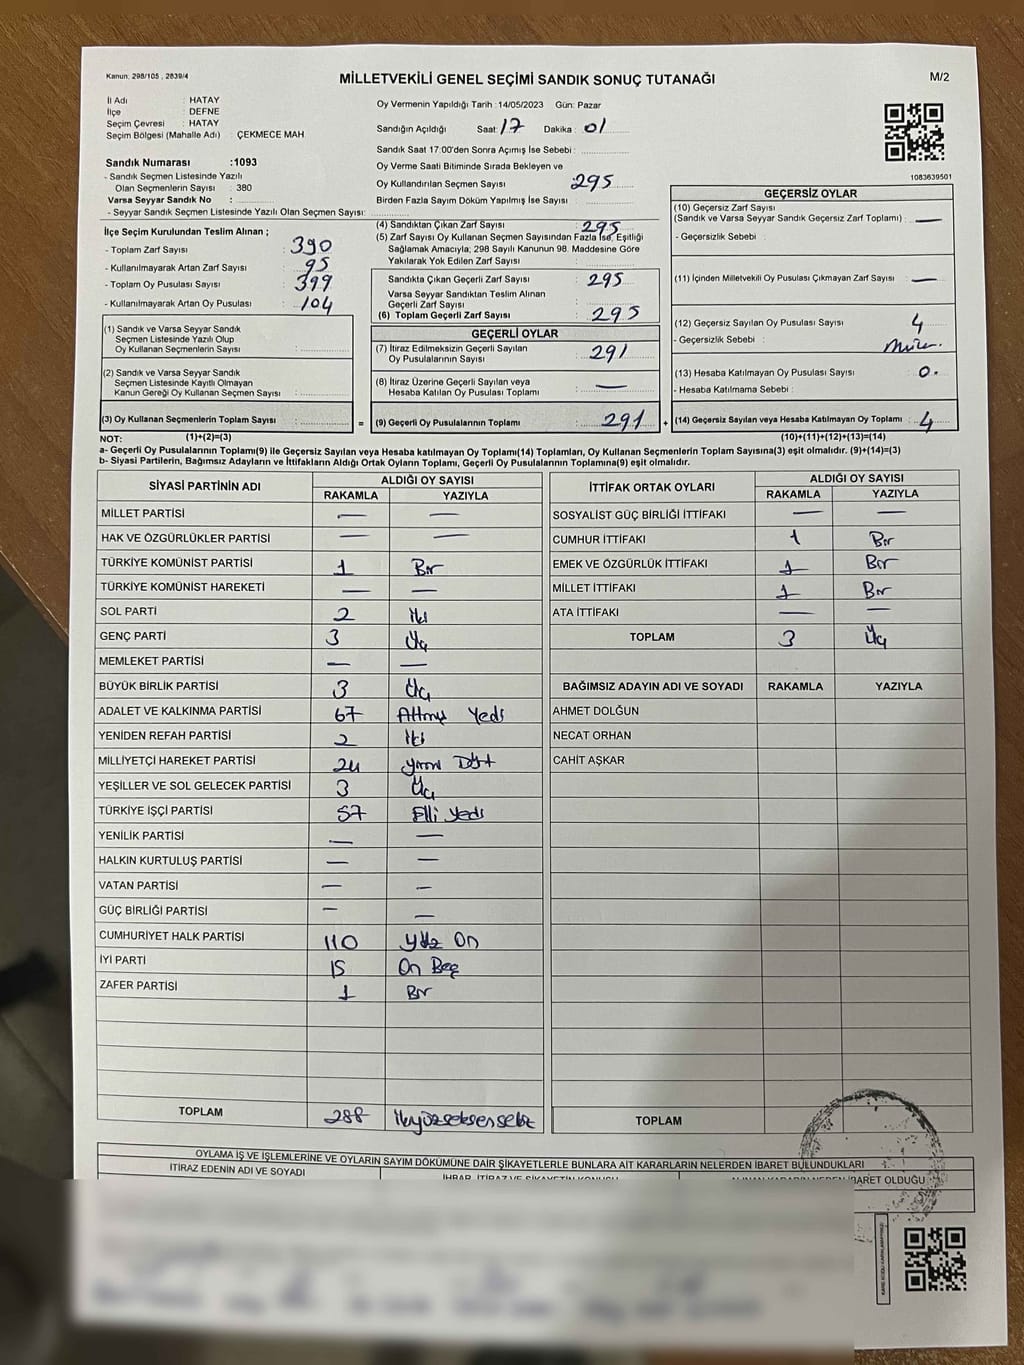 Kanun: 298/105 , 2839/4
MİLLETVEKİLİ GENEL SEÇİMİ SANDIK SONUÇ TUTANAĞI
M/2
İl Adı : HATAY
İlçe : DEFNE
Seçim Çevresi : HATAY
Seçim Bölgesi (Mahalle Adı) : ÇEKMECE MAH
Sandık Numarası :1093
- Sandık Seçmen Listesinde Yazılı
Olan Seçmenlerin Sayısı : 380
Varsa Seyyar Sandık No :
- Seyyar Sandık Seçmen Listesinde Yazılı Olan Seçmen Sayısı:
İlçe Seçim Kurulundan Teslim Alınan ;
- Toplam Zarf Sayısı : 390
- Kullanılmayarak Artan Zarf Sayısı : 95
- Toplam Oy Pusulası Sayısı : 399
- Kullanılmayarak Artan Oy Pusulası : 104
(1) Sandık ve Varsa Seyyar Sandık
Seçmen Listesinde Yazılı Olup
Oy Kullanan Seçmenlerin Sayısı :
(2) Sandık ve Varsa Seyyar Sandık
Seçmen Listesinde Kayıtlı Olmayan
Kanun Gereği Oy Kullanan Seçmen Sayısı :
(3) Oy Kullanan Seçmenlerin Toplam Sayısı :
Oy Vermenin Yapıldığı Tarih :14/05/2023 Gün: Pazar
Sandığın Açıldığı Saat: 17 Dakika : 01
Sandık Saat 17:00'den Sonra Açımış İse Sebebi :
Oy Verme Saati Bitiminde Sırada Bekleyen ve
Oy Kullandırılan Seçmen Sayısı : 295
Birden Fazla Sayım Döküm Yapılmış İse Sayısı :
(4) Sandıktan Çıkan Zarf Sayısı : 295
(5) Zarf Sayısı Oy Kullanan Seçmen Sayısından Fazla İse, Eşitliği
Sağlamak Amacıyla; 298 Sayılı Kanunun 98. Maddesine Göre
Yakılarak Yok Edilen Zarf Sayısı :
Sandıkta Çıkan Geçerli Zarf Sayısı : 295
Varsa Seyyar Sandıktan Teslim Alınan
Geçerli Zarf Sayısı :
(6) Toplam Geçerli Zarf Sayısı : 295
GEÇERLİ OYLAR
(7) İtiraz Edilmeksizin Geçerli Sayılan
Oy Pusulalarının Sayısı : 291
(8) İtiraz Üzerine Geçerli Sayılan veya
Hesaba Katılan Oy Pusulası Toplamı : —
= (9) Geçerli Oy Pusulalarının Toplamı : 291
1083639501
GEÇERSİZ OYLAR
(10) Geçersiz Zarf Sayısı
(Sandık ve Varsa Seyyar Sandık Geçersiz Zarf Toplamı) : —
- Geçersizlik Sebebi :
(11) İçinden Milletvekili Oy Pusulası Çıkmayan Zarf Sayısı : —
(12) Geçersiz Sayılan Oy Pusulası Sayısı : 4
- Geçersizlik Sebebi :
(13) Hesaba Katılmayan Oy Pusulası Sayısı : 0.
- Hesaba Katılmama Sebebi :
+ (14) Geçersiz Sayılan veya Hesaba Katılmayan Oy Toplamı : 4
NOT: (1)+(2)=(3) (10)+(11)+(12)+(13)=(14)
a- Geçerli Oy Pusulalarının Toplamı(9) ile Geçersiz Sayılan veya Hesaba katılmayan Oy Toplamı(14) Toplamları, Oy Kullanan Seçmenlerin Toplam Sayısına(3) eşit olmalıdır. (9)+(14)=(3)
b- Siyasi Partilerin, Bağımsız Adayların ve İttifakların Aldığı Ortak Oyların Toplamı, Geçerli Oy Pusulalarının Toplamına(9) eşit olmalıdır.
SİYASİ PARTİNİN ADI ALDIĞI OY SAYISI
RAKAMLA YAZIYLA
MİLLET PARTİSİ — —
HAK VE ÖZGÜRLÜKLER PARTİSİ — —
TÜRKİYE KOMÜNİST PARTİSİ 1 Bir
TÜRKİYE KOMÜNİST HAREKETİ — —
SOL PARTİ 2 İki
GENÇ PARTİ 3 Üç
MEMLEKET PARTİSİ — —
BÜYÜK BİRLİK PARTİSİ 3 Üç
ADALET VE KALKINMA PARTİSİ 67 Altmış Yedi
YENİDEN REFAH PARTİSİ 2 İki
MİLLİYETÇİ HAREKET PARTİSİ 24 Yirmi Dört
YEŞİLLER VE SOL GELECEK PARTİSİ 3 Üç
TÜRKİYE İŞÇİ PARTİSİ 57 Elli Yedi
YENİLİK PARTİSİ — —
HALKIN KURTULUŞ PARTİSİ — —
VATAN PARTİSİ — —
GÜÇ BİRLİĞİ PARTİSİ — —
CUMHURİYET HALK PARTİSİ 110 Yüz On
İYİ PARTİ 15 On Beş
ZAFER PARTİSİ 1 Bir
TOPLAM 288 İkiyüzseksensekiz
İTTİFAK ORTAK OYLARI ALDIĞI OY SAYISI
RAKAMLA YAZIYLA
SOSYALİST GÜÇ BİRLİĞİ İTTİFAKI — —
CUMHUR İTTİFAKI 1 Bir
EMEK VE ÖZGÜRLÜK İTTİFAKI 1 Bir
MİLLET İTTİFAKI 1 Bir
ATA İTTİFAKI — —
TOPLAM 3 Üç
BAĞIMSIZ ADAYIN ADI VE SOYADI RAKAMLA YAZIYLA
AHMET DOLĞUN
NECAT ORHAN
CAHİT AŞKAR
TOPLAM
OYLAMA İŞ VE İŞLEMLERİNE VE OYLARIN SAYIM DÖKÜMÜNE DAİR ŞİKAYETLERLE BUNLARA AİT KARARLARIN NELERDEN İBARET BULUNDUKLARI
İTİRAZ EDENİN ADI VE SOYADI
İHBAR, İTİRAZ VE ŞİKAYETİN KONUSU
İBARET OLDUĞU